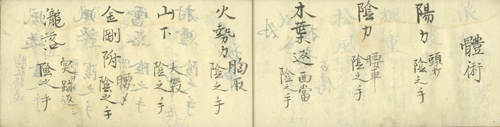 體術
陽力 頭打 陰之手
陰力 腰車 陰之手
木葉返 面當 陰之手
火勢力 胸取 陰之手
山下 大殺 陰之手
金剛附 腰〆 陰之手
瀧落 突蹴返 陰之手